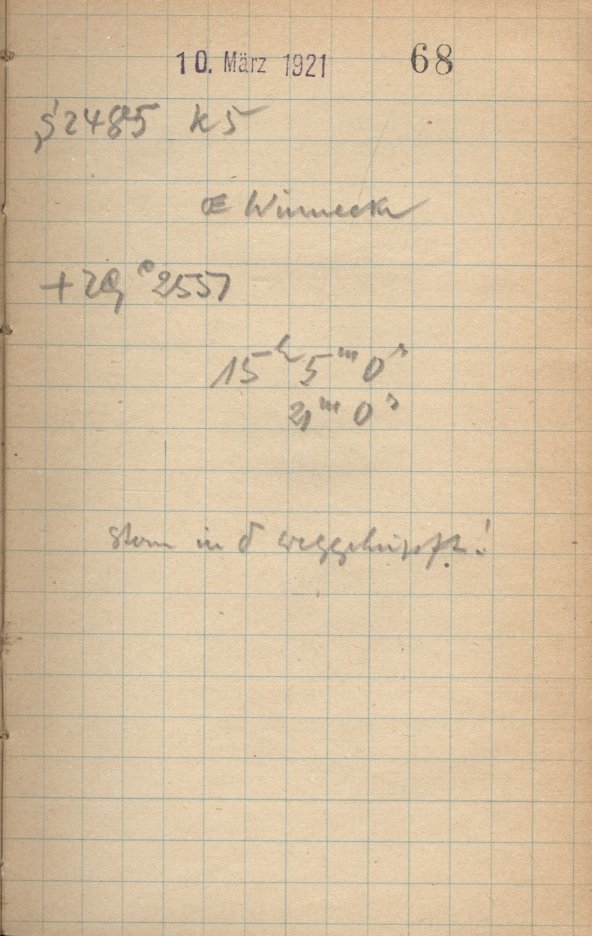 10. März 1921 68
S 2485 k5
Œ Winnecke
+29° 2557
15ʰ 5ᵐ 0ˢ
21ᵐ 0ˢ
Stern in δ weggehüpft!